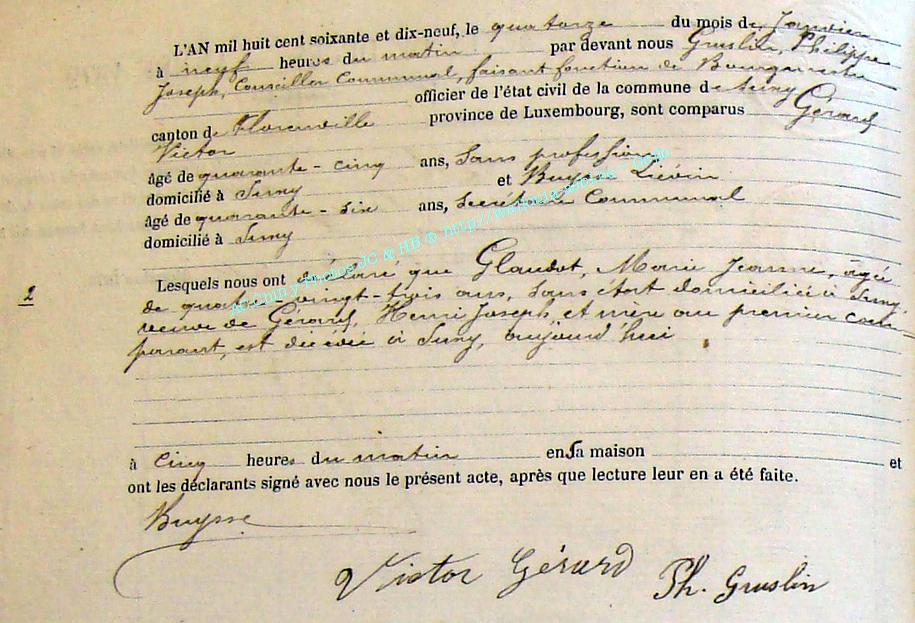 L'AN mil huit cent soixante et dix-neuf, le quatorze du mois de Janvier
à neuf heures du matin par devant nous Gruslin, Philippe
Joseph, Conseiller Communal, faisant fonction de Bourgmestre
officier de l'état civil de la commune de Suny
canton de Florenville province de Luxembourg, sont comparus Gérard
Victor
âgé de quarante-cinq ans, sans profession
domicilié à Suny et Buysse Liévin
âgé de quarante-six ans, Secrétaire Communal
domicilié à Suny
2
Lesquels nous ont déclaré que Glaudot, Marie Jeanne, âgée
de quatre vingt-trois ans, sans état domiciliée à Suny,
veuve de Gérard, Henri Joseph, et mère au premier com
parant, est décédée à Suny, aujourd'hui
à cinq heures du matin en sa maison et
ont les déclarants signé avec nous le présent acte, après que lecture leur en a été faite.
Buysse
Victor Gérard Ph. Gruslin
Photos JG & HB ® http://www.